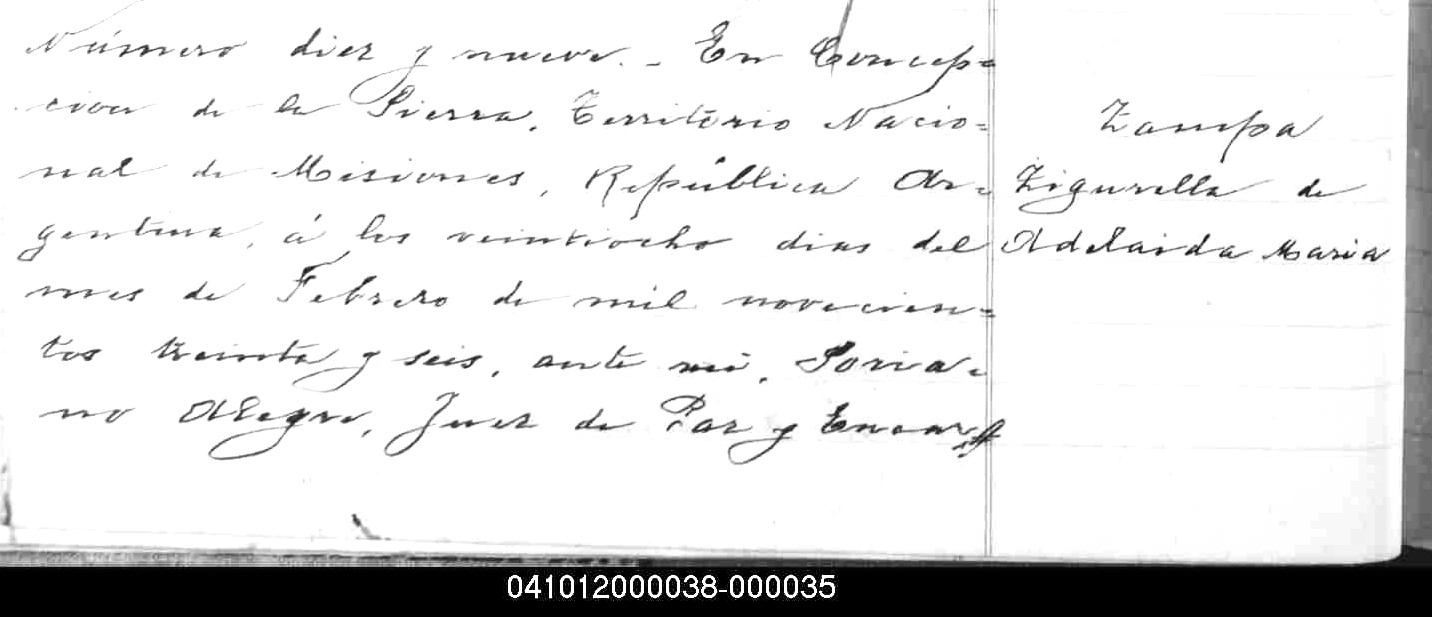 Número diez y nueve. - En Concep=
cion de la Sierra, Territorio Nacio=
nal de Misiones, República Ar=
gentina, á los veintiocho dias del
mes de Febrero de mil novecien=
tos treinta y seis, ante mi, Soria=
no Alegre, Juez de Paz y Encar
Zampa
Zigurella de
Adelaida Maria
041012000038-000035